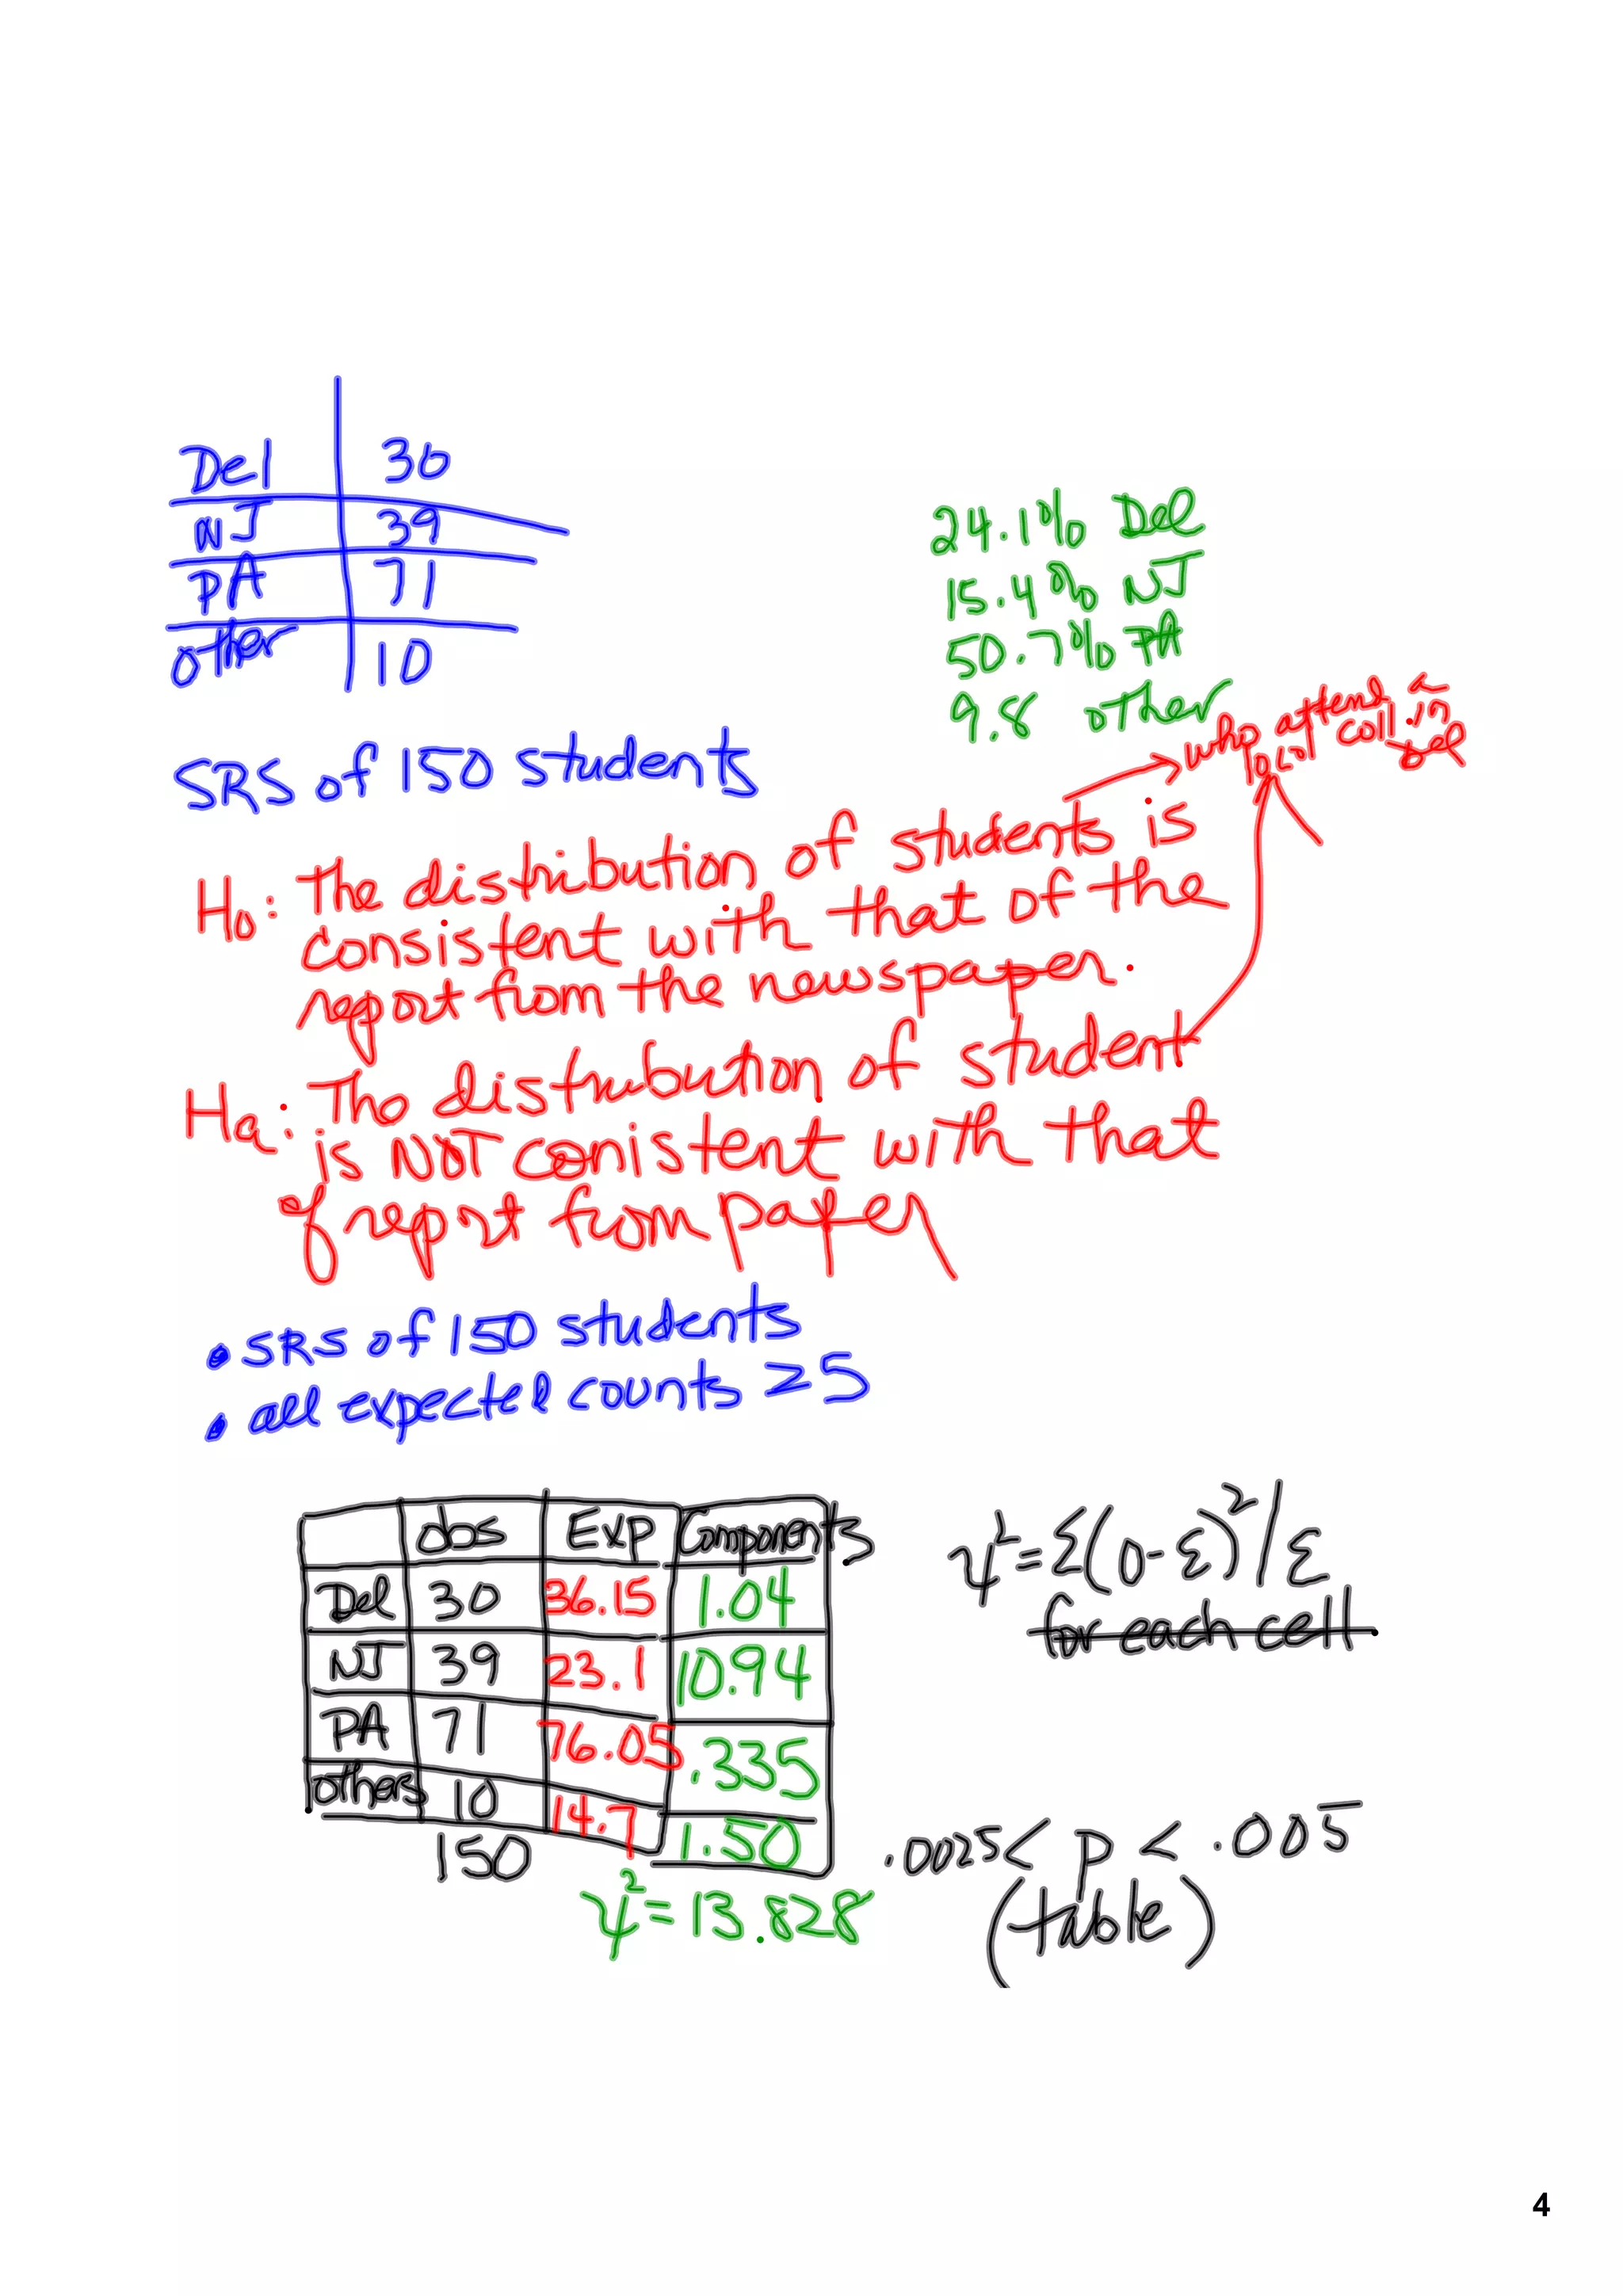 Del 30
NJ 39
PA 71
other 10
24.1% Del
15.4% NJ
50.7% PA
9.8 other
who attend a
local coll. in
Del
SRS of 150 students
Ho: The distribution of students is
consistent with that of the
report from the newspaper.
Ha: The distribution of student
is NOT conistent with that
of report from paper
• SRS of 150 students
• all expected counts ≥5
obs Exp Components
Del 30 36.15 1.04
NJ 39 23.1 10.94
PA 71 76.05 .335
others 10 14.7 1.50
150
χ²=13.828
χ²=Σ(O-E)²/E
for each cell
.0025< p < .005
(table)
4